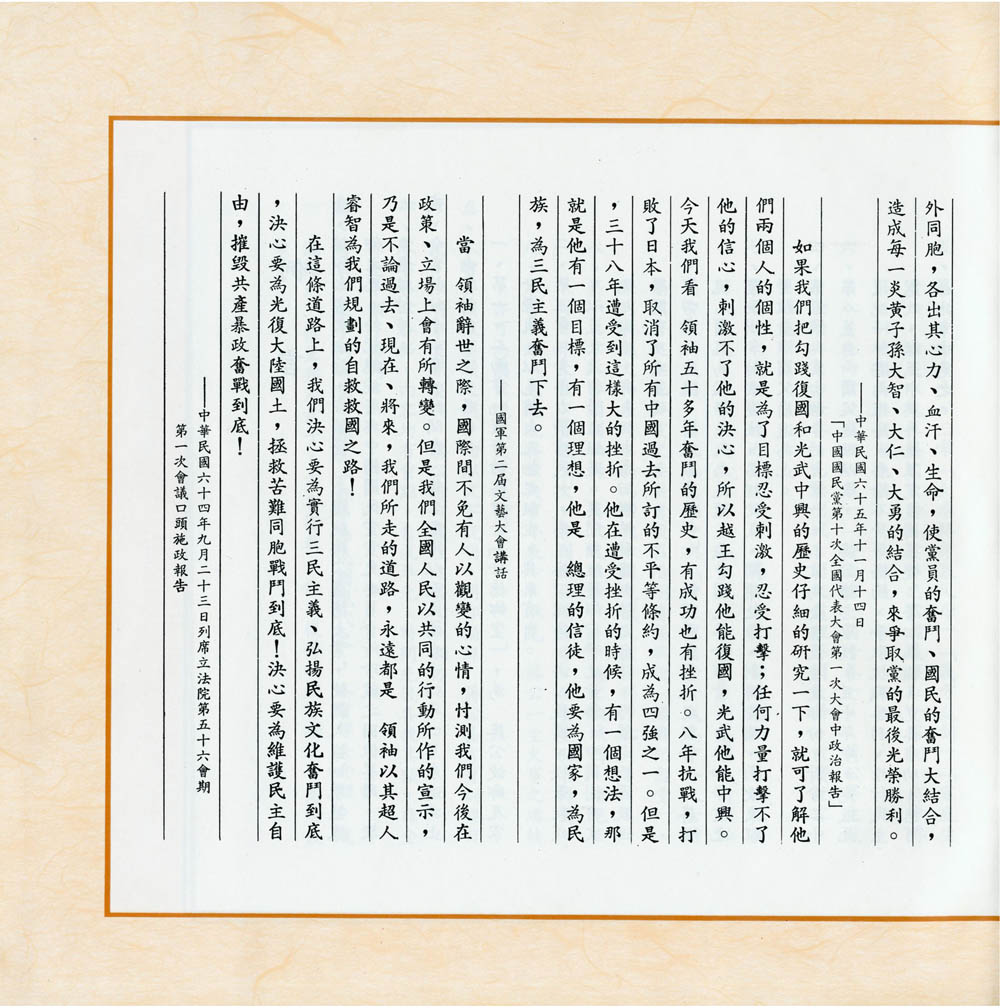 外同胞，各出其心力、血汗、生命，使黨員的奮鬥、國民的奮鬥大結合，
造成每一炎黃子孫大智、大仁、大勇的結合，來爭取黨的最後光榮勝利。
——中華民國六十五年十一月十四日
「中國國民黨第十次全國代表大會第一次大會中政治報告」
如果我們把勾踐復國和光武中興的歷史仔細的研究一下，就可了解他
們兩個人的個性，就是為了目標忍受刺激，忍受打擊；任何力量打擊不了
他的信心，刺激不了他的決心，所以越王勾踐他能復國，光武他能中興。
今天我們看　領袖五十多年奮鬥的歷史，有成功也有挫折。八年抗戰，打
敗了日本，取消了所有中國過去所訂的不平等條約，成為四強之一。但是
，三十八年遭受到這樣大的挫折。他在遭受挫折的時候，有一個想法，那
就是他有一個目標，有一個理想，他是　總理的信徒，他要為國家，為民
族，為三民主義奮鬥下去。
——國軍第二屆文藝大會講話
當　領袖辭世之際，國際間不免有人以觀變的心情，忖測我們今後在
政策、立場上會有所轉變。但是我們全國人民以共同的行動所作的宣示，
乃是不論過去、現在、將來，我們所走的道路，永遠都是　領袖以其超人
睿智為我們規劃的自救救國之路！
在這條道路上，我們決心要為實行三民主義、弘揚民族文化奮鬥到底
，決心要為光復大陸國土，拯救苦難同胞戰鬥到底！決心要為維護民主自
由，摧毀共產暴政奮戰到底！
——中華民國六十四年九月二十三日列席立法院第五十六會期
第一次會議口頭施政報告